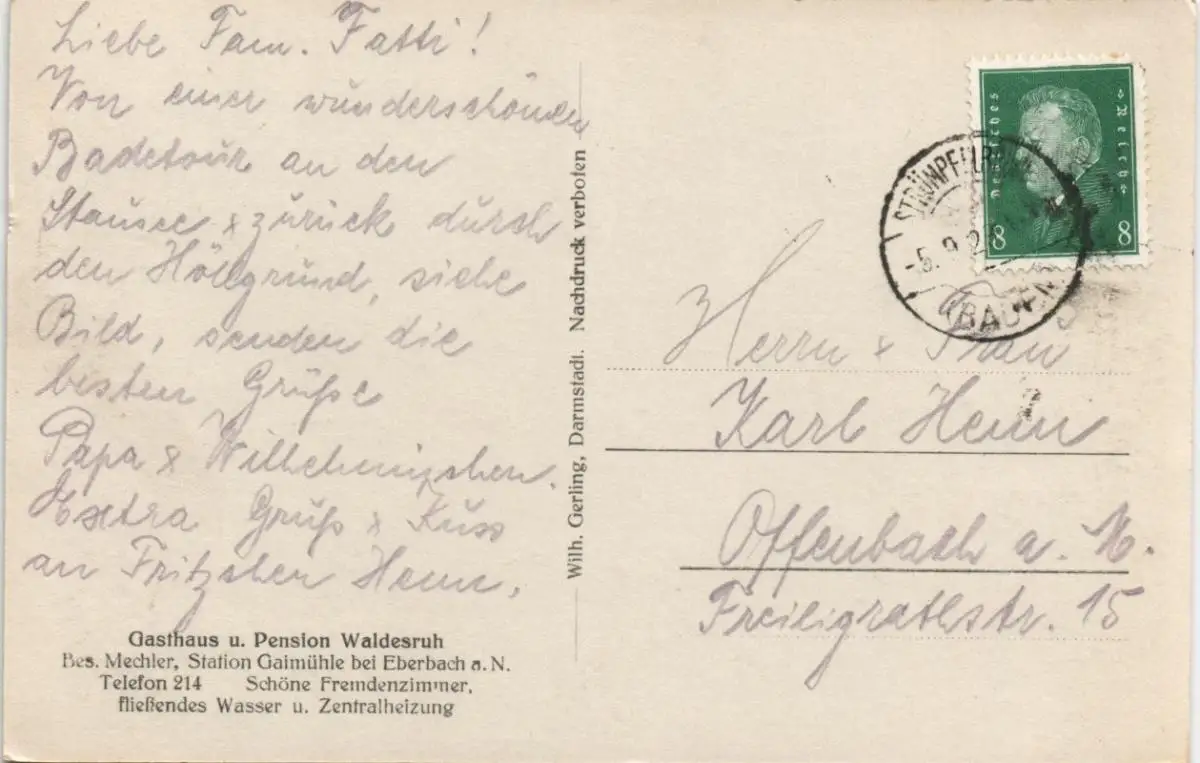 Liebe Fam. Fatti!
Von einer wunderschönen
Badetour an den
Stausee & zurück durch
den Höllgrund, siehe
Bild, senden die
besten Grüße
Papa & Wilhelminchen.
Extra Gruß & Kuss
an Fritzchen Henn.
Gasthaus u. Pension Waldesruh
Bes. Mechler, Station Gaimühle bei Eberbach a. N.
Telefon 214 Schöne Fremdenzimmer,
fließendes Wasser u. Zentralheizung
Wilh. Gerling, Darmstadt. Nachdruck verboten
Deutsches Reich
8 8
-5. 9. 2
(BADEN)
Herrn & Frau
Karl Henn
Offenbach a. M.
Freiligrathstr. 15